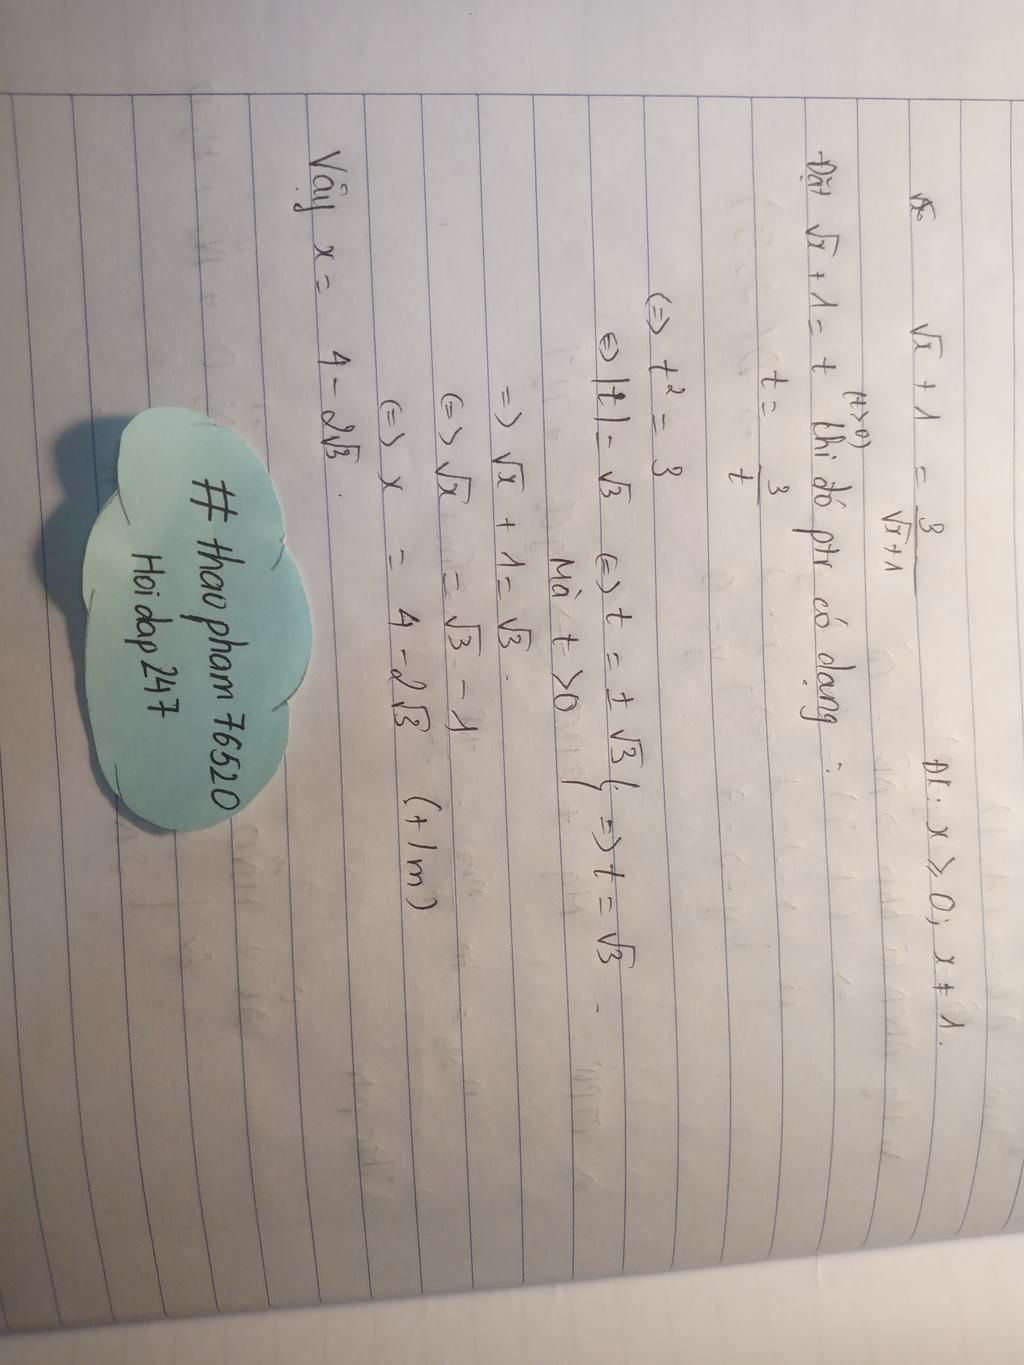 √x + 1 = 3/(√x+1) ĐK: x ≥ 0; x ≠ 1.
Đặt √x + 1 = t (t>0) thì đó ptr có dạng:
t = 3/t
(=) t² = 3
(=) |t| = √3 (=) t = ± √3 } => t = √3
Mà t > 0
=) √x + 1 = √3.
(=) √x = √3 - 1
(=) x = 4 - 2√3 (t/m)
Vậy x = 4 - 2√3.
# thaopham76520
Hoidap247